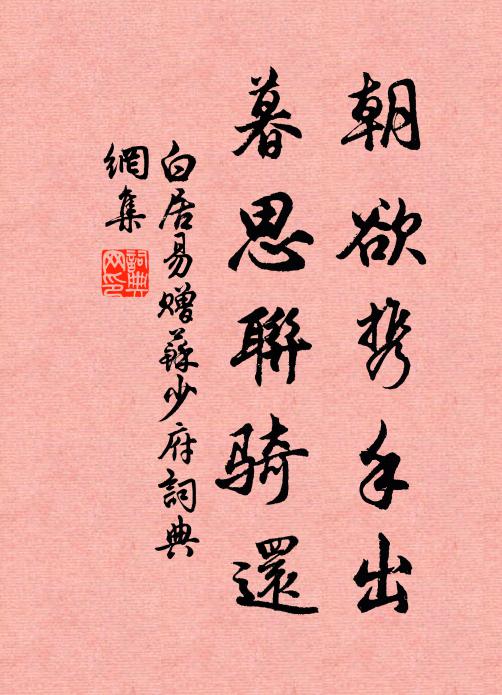 朝欲携手出
暮思聯騎還
白居易贈蘇少府詞典
網集
詞典
网印